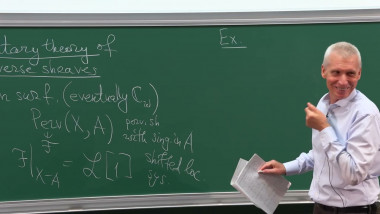 tary theory of
verse sheaves
n surf, (eventually ℂ_{(w)})
Perv(X, A) perv. sh
with sing in A
F
F|_{X-A} = L[1] shifted loc
sys.
Ex.